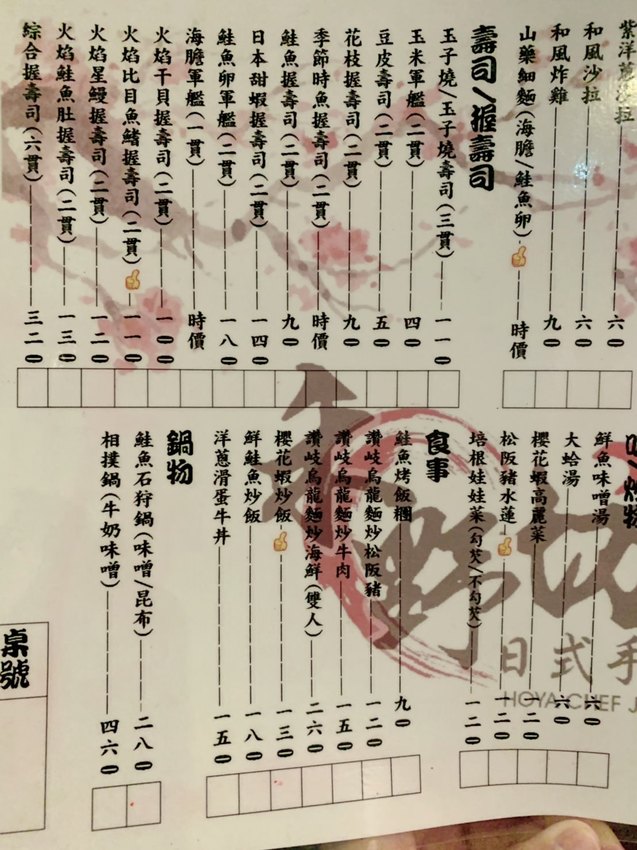 紫洋蔥沙拉 六0
和風沙拉 六0
和風炸雞 九0
山藥細麵(海膽/鮭魚卵) 時價
壽司/握壽司
玉子燒/玉子燒壽司(三貫) 一一0
玉米軍艦(二貫) 四0
豆皮壽司(二貫) 五0
花枝握壽司(二貫) 九0
季節時魚握壽司(二貫) 時價
鮭魚握壽司(二貫) 九0
日本甜蝦握壽司(二貫) 一四0
鮭魚卵軍艦(二貫) 一八0
海膽軍艦(一貫) 時價
火焰干貝握壽司(二貫) 一00
火焰比目魚鰭握壽司(二貫) 一一0
火焰星鰻握壽司(二貫) 一二0
火焰鮭魚肚握壽司(二貫) 一三0
綜合握壽司(六貫) 三二0
鮮魚味噌湯 六0
大蛤湯 六0
櫻花蝦高麗菜
松阪豬水蓮
培根娃娃菜(勾芡/不勾芡) 一二0
食事
鮭魚烤飯糰 九0
讚岐烏龍麵炒松阪豬 一二0
讚岐烏龍麵炒牛肉 一五0
讚岐烏龍麵炒海鮮(雙人) 二六0
櫻花蝦炒飯 一三0
鮮鮭魚炒飯 一八0
洋蔥滑蛋牛丼 一五0
鍋物
鮭魚石狩鍋(味噌/昆布) 二八0
相撲鍋(牛奶味噌) 四六0
日式手
HOYA CHEF J
桌號